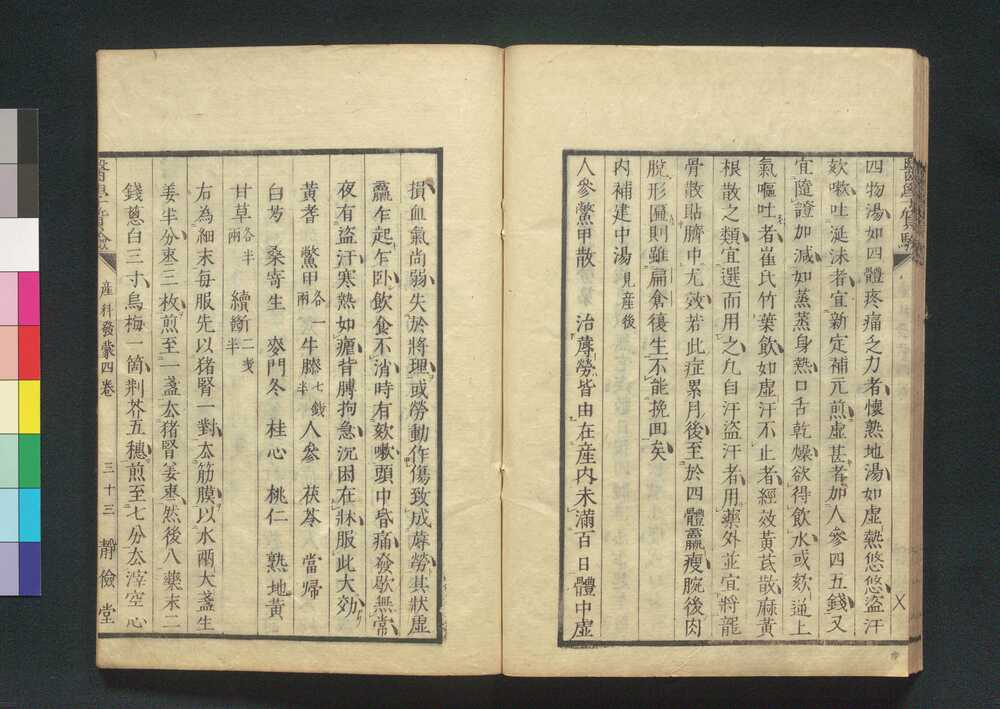 四物湯如四體疼痛乏力者懷熟地湯如虛熱悠悠盜汗
欬嗽吐涎沫者宜新定補元煎虛甚者加人參四五錢又
宜隨證加減如蒸蒸身熱口舌乾燥欲得飲水或欬逆上
氣嘔吐者崔氏竹葉飲如虛汗不止者經效黃芪散麻黃
根散之類宜選而用之凡自汗盜汗者用藥外並宜將龍
骨散貼臍中尤效若此症累月後至於四體羸瘦腕後肉
脫形匾則雖扁倉復生不能挽回矣
內補建中湯見產後
人參鱉甲散 治蓐勞皆由在產內未滿百日體中虛
損血氣尚弱失於將理或勞動作傷致成蓐勞其狀虛
羸乍起乍臥飲食不消時有欬嗽頭中昏痛發歇無常
夜有盜汗寒熱如瘧背膊拘急沉困在牀服此大效
黃耆 鱉甲各一兩 牛膝七錢半 人參 茯苓 當歸
白芍 桑寄生 麥門冬 桂心 桃仁 熟地黃
甘草各半兩 續斷二錢半
右為細末每服先以猪腎一對去筋膜以水兩大盞生
姜半分棗三枚煎至一盞去猪腎姜棗然後入藥末二
錢蔥白三寸烏梅一箇荆芥五穗煎至七分去滓空心
產科發蒙四卷 三十三 靜儉堂